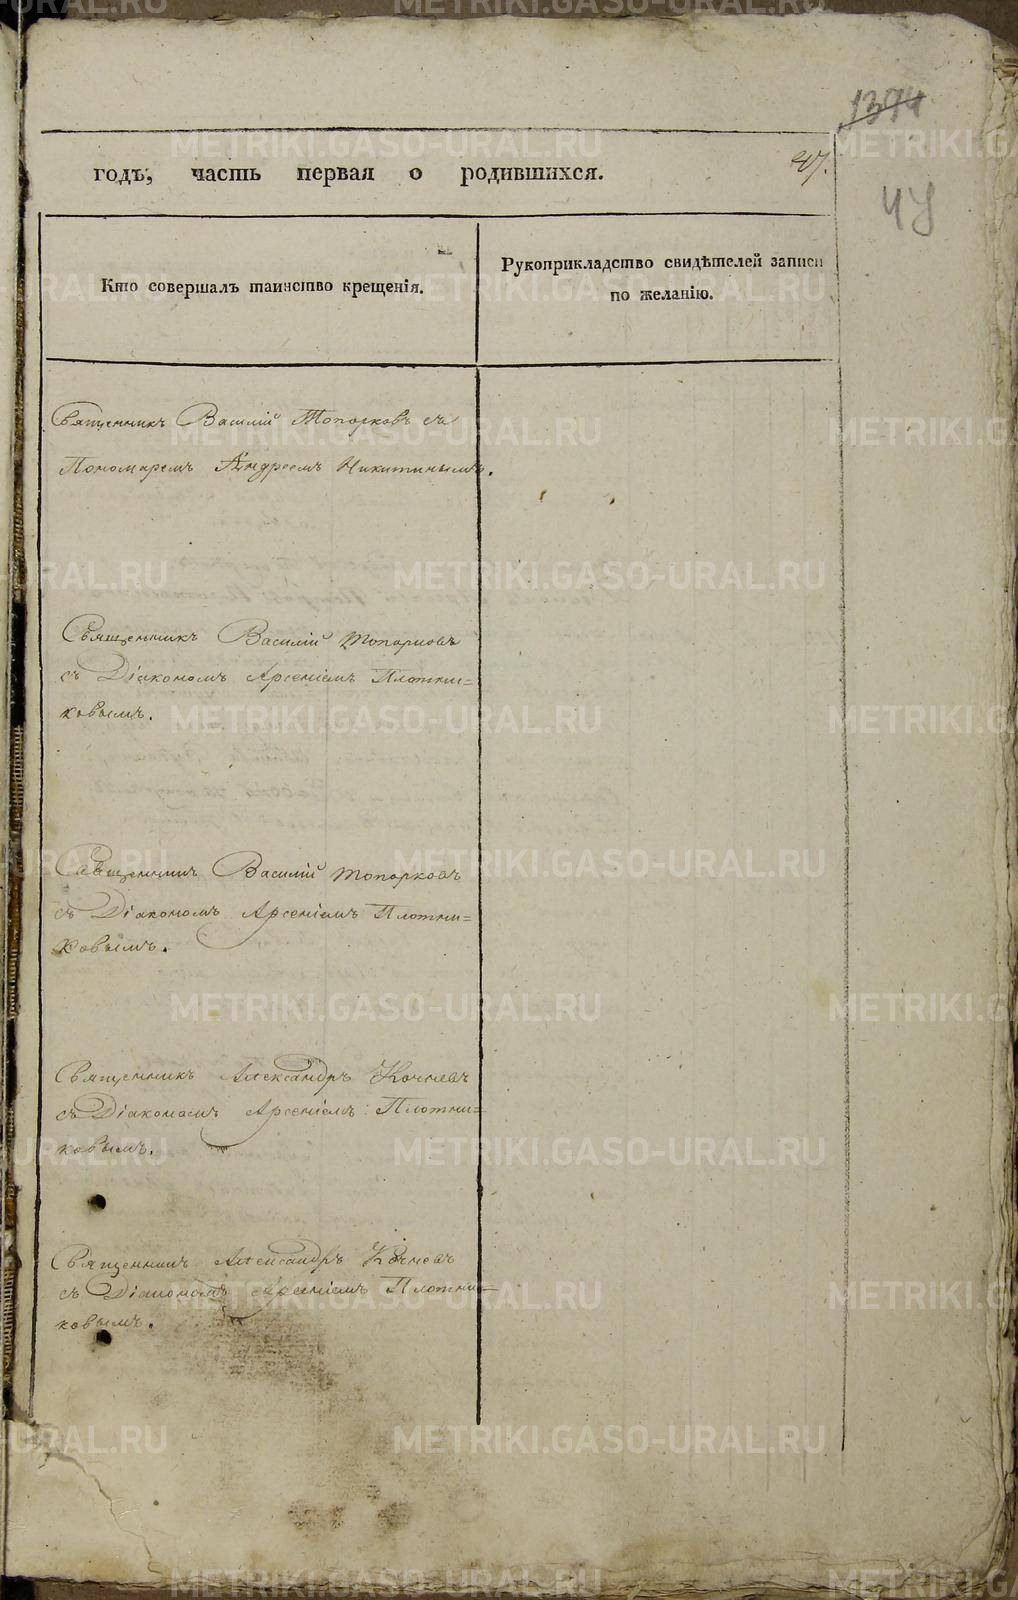 1394
годъ, часть первая о родившихся.
47.
Кто совершалъ таинство крещенія.
Рукоприкладство свидѣтелей записи
по желанію.
Священникъ Василій Топорковъ съ
Пономаремъ Андреемъ Никитинымъ.
Священникъ Василій Топорковъ
съ Діакономъ Арсеніемъ Плотни=
ковымъ.
Священникъ Василій Топорковъ
съ Діакономъ Арсеніемъ Плотни=
ковымъ.
Священникъ Александръ Кочневъ
съ Діакономъ Арсеніемъ Плотни=
ковымъ.
Священникъ Александръ Кочневъ
съ Діакономъ Арсеніемъ Плотни=
ковымъ.
METRIKI.GASO-URAL.RU